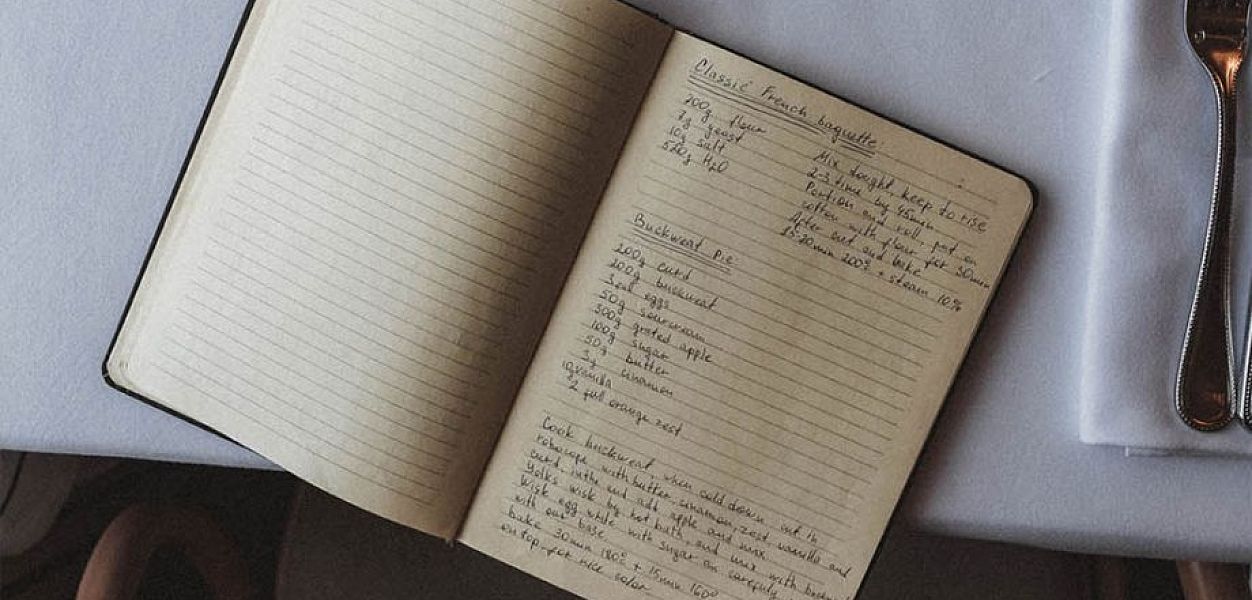 Classic French baguette:
700g flour
7g yeast
10g salt
520g H2O
Mix dought, keep to rise
2-3 time by 45min
Portion and roll, put on
cotton with flour for 30min
After cut and bake
15-20min 200° + steam 10%
Buckweat Pie
200g curd
200g buckweat
eggs
50g sourcream
300g grated apple
100g sugar
50g butter
3g cinamon
vanilla
2 orange zest
Cook buckweat, when cold down, put in
robocope with butter, cinamon, zest, vanilla and
curd, and add apple and mix
Yolks wisk by hot bath, and mix with
Wisk egg white with sugar an carefuly
with our base
bake 30min 180° + 15min 160°
on top for nice color